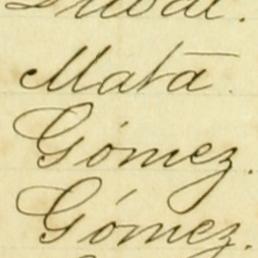 Mata.
Gómez.
Gómez.